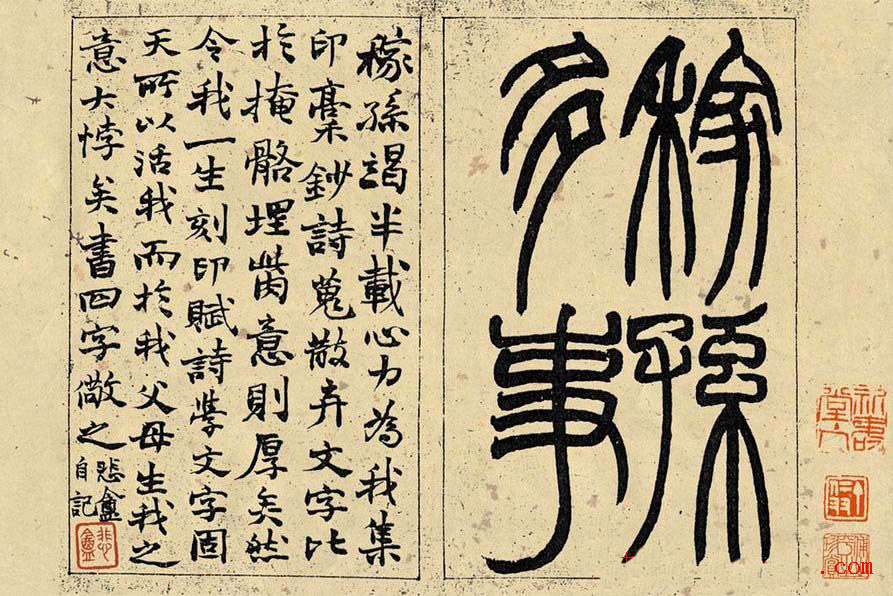 稼孫
多事
稼孫竭半載心力為我集
印稾鈔詩蒐散弃文字比
於掩骼埋胔意則厚矣然
令我一生刻印賦詩學文字固
天所以活我而於我父母生我之
意大悖矣書四字儆之
悲盦
自記
悲盦
.com